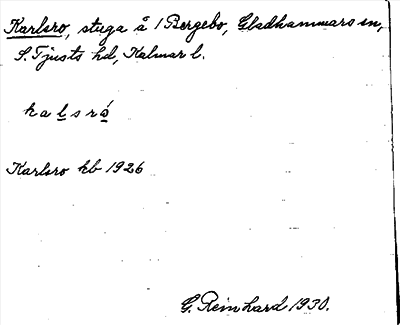 Karlsro, stuga å 1 Borgebo, Gladhammars sn,
S. Tjusts hd, Kalmar l.
kalsrǻ
Karlsro kb 1926
G. Reinhard 1930.